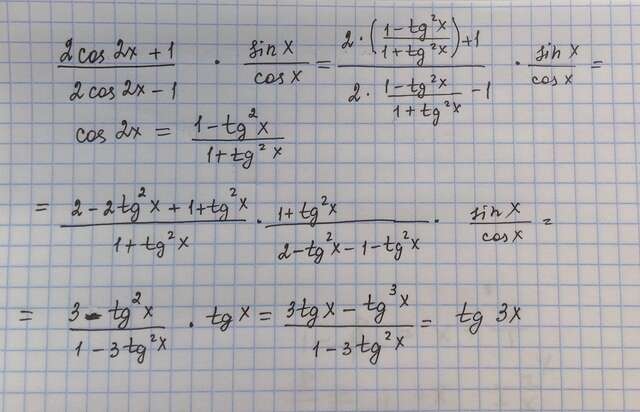 (2cos 2x + 1)/(2cos 2x - 1) · sin x/cos x = (2 · ((1 - tg²x)/(1 + tg²x)) + 1)/(2 · (1 - tg²x)/(1 + tg²x) - 1) · sin x/cos x =
cos 2x = (1 - tg²x)/(1 + tg²x)
= (2 - 2tg²x + 1 + tg²x)/(1 + tg²x) · (1 + tg²x)/(2 - tg²x - 1 - tg²x) · sin x/cos x =
= (3 - tg²x)/(1 - 3tg²x) · tg x = (3tg x - tg³x)/(1 - 3tg²x) = tg 3x